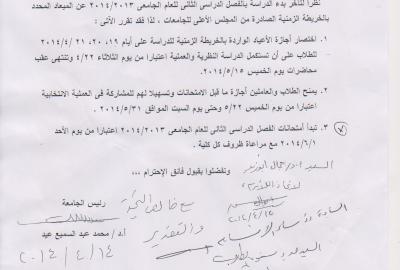 نظرا لتأخر بدء الدراسة بالفصل الدراسى الثانى للعام الجامعى ٢٠١٤/٢٠١٣ عن الميعاد المحدد
بالخريطة الزمنية الصادرة من المجلس الأعلى للجامعات ، لذا فقد تقرر الأتى :
١. اختصار أجازة الأعياد الواردة بالخريطة الزمنية للدراسة على أيام ١٩، ٢٠، ٢١ /٢٠١٤/٤
للطلاب على أن تستكمل الدراسة النظرية والعملية إعتبارا من يوم الثلاثاء ٤/٢٢ وتنتهى عقب
محاضرات يوم الخميس ٢٠١٤/٥/١٥.
٢. يمنح الطلاب والعاملين أجازة ما قبل الامتحانات وتسهيلا لهم للمشاركة فى العملية الانتخابية
اعتبارا من يوم الخميس ٥/٢٢ وحتى يوم السبت الموافق ٢٠١٤/٥/٣١ .
٣. تبدأ امتحانات الفصل الدراسى الثانى للعام الجامعى ٢٠١٤/٢٠١٣ اعتبارا من يوم الأحد
٢٠١٤/٦/١ مع مراعاة ظروف كل كلية .
وتفضلوا بقبول فائق الإحترام ،،،
رئيس الجامعة
أ.د / محمد عبد السميع عيد
مع خالص التحية
والتقدير
٢٠١٤/٤/١٤